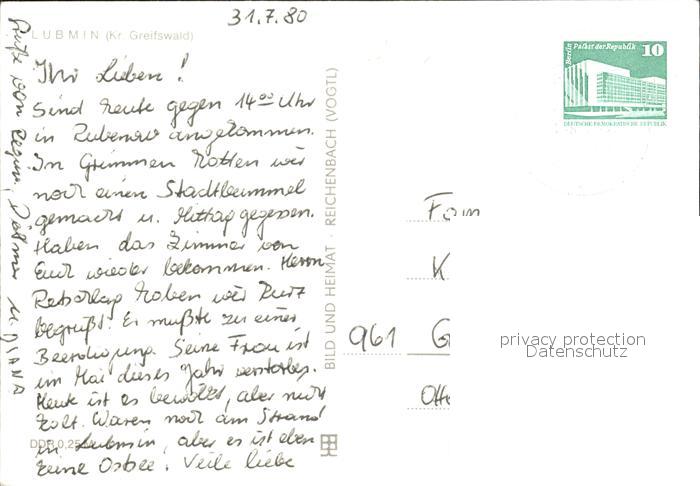 31.7.80
LUBMIN (Kr. Greifswald)
Ihr Lieben!
Sind heute gegen 14⁰⁰ Uhr
in Rubenow angekommen.
In Grimmen hatten wir
noch einen Stadtbummel
gemacht u. Mittag gegessen.
Haben das Zimmer von
Euch wieder bekommen. Herrn
haben wir kurz
begrüßt. Er mußte zu einer
Beerdigung. Seine Frau ist
im Mai dieses Jahr verstorben.
Heute ist es bewölkt, aber nicht
kalt. Waren noch am Strand
in Lubmin, aber es ist eben
keine Ostsee. Viele liebe
Grüße von Regina, Detmar u. DIANA
DDR 0,25 M
BILD UND HEIMAT · REICHENBACH (VOGTL)
Berlin Palast der Republik 10
DEUTSCHE DEMOKRATISCHE REPUBLIK
Fam
K
961 G
Otto
privacy protection
Datenschutz